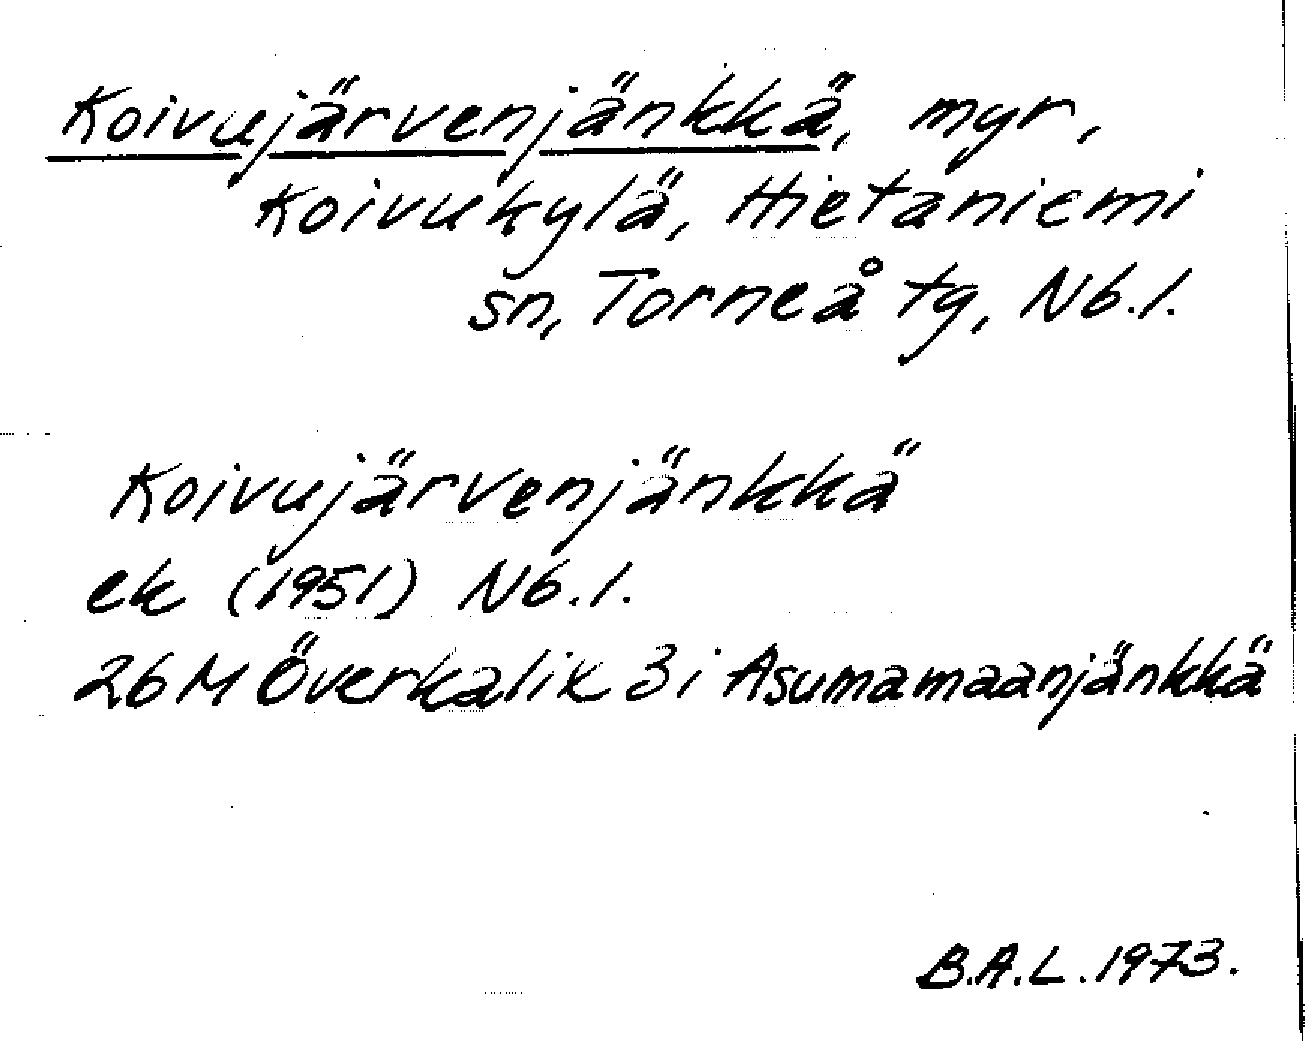 Koivujärvenjänkkä, myr,
Koivukylä, Hietaniemi
sn, Torneå tg, Nb.l.
Koivujärvenjänkkä
ek (1951) Nb.l.
26 M Överkalix 3i Asumamaanjänkkä
B.A.L. 1973.